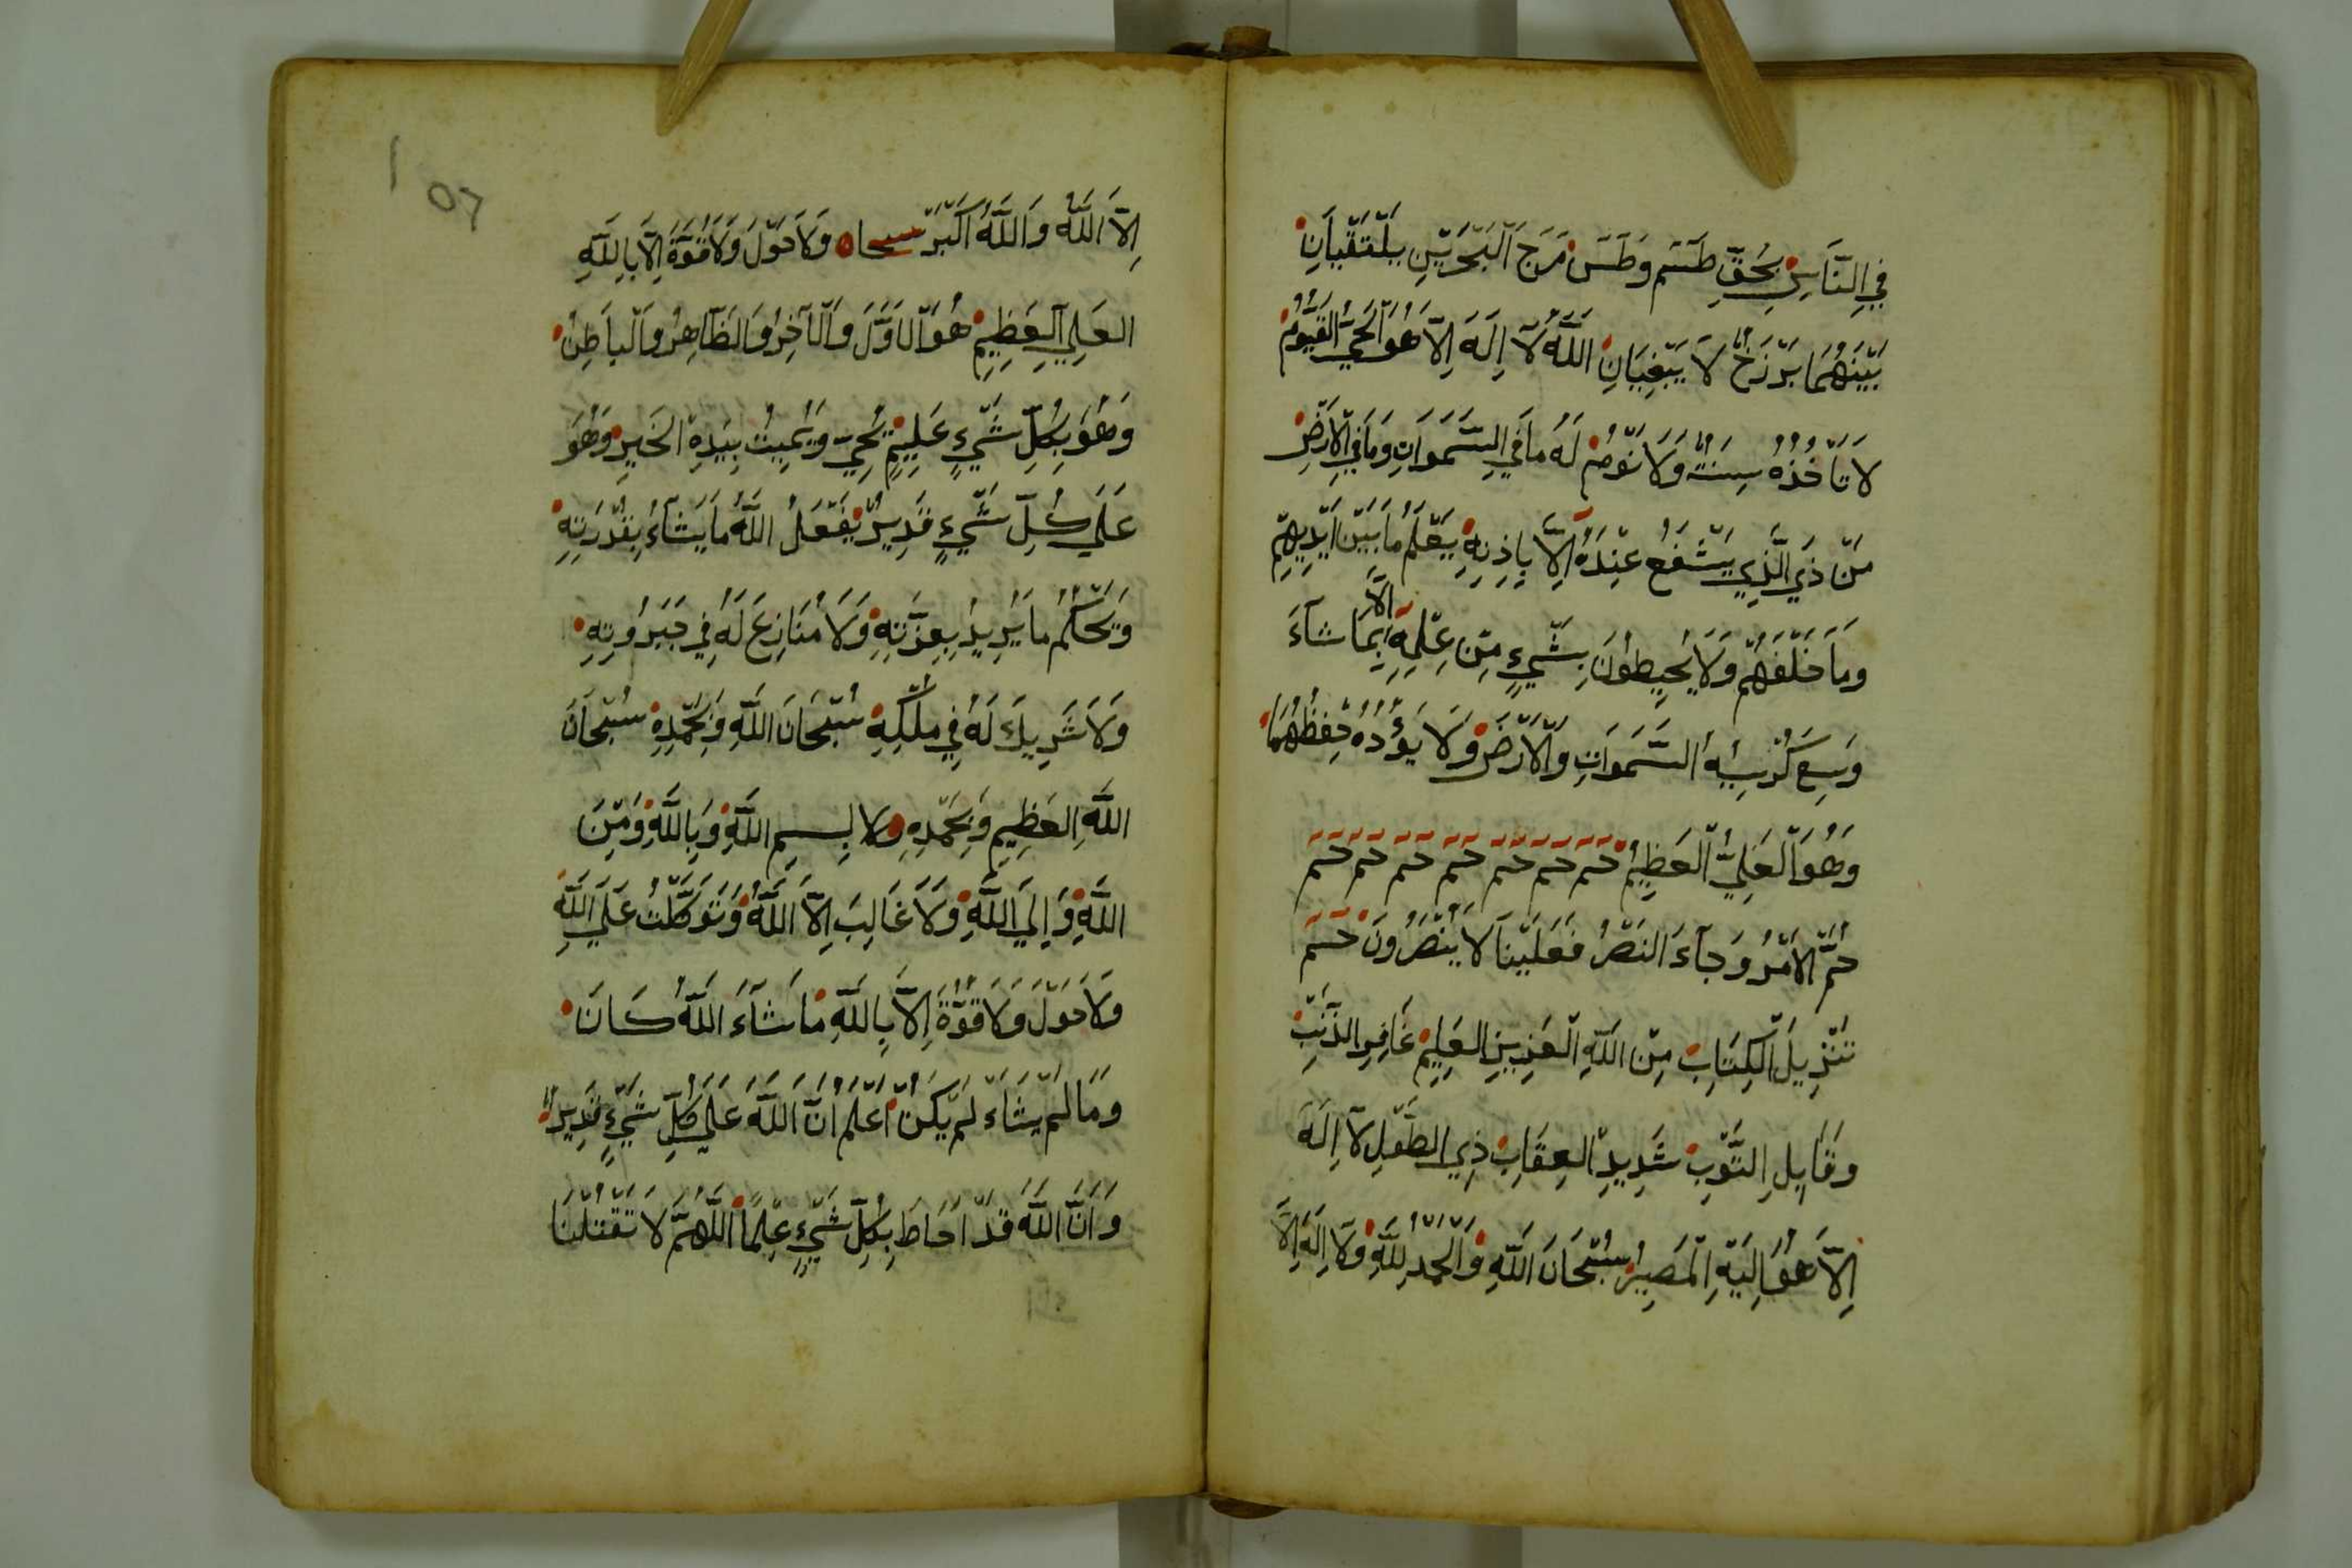 فِي النَّاسِ بِحَقِّ طٓسٓمٓ وَطٰسٓ مَرَجَ الْبَحْرَيْنِ يَلْتَقِيَانِ
بَيْنَهُمَا بَرْزَخٌ لَا يَبْغِيَانِ اللَّهُ لَآ إِلَهَ إِلَّا هُوَ الْحَيُّ الْقَيُّومُ
لَا تَأْخُذُهُ سِنَةٌ وَلَا نَوْمٌ لَهُ مَا فِي السَّمَوَاتِ وَمَا فِي الْأَرْضِ
مَنْ ذَي الَّذِي يَشْفَعُ عِنْدَهُ إِلَّا بِإِذْنِهِ يَعْلَمُ مَا بَيْنَ أَيْدِيهِمْ
وَمَا خَلْفَهُمْ وَلَا يُحِيطُونَ بِشَيْءٍ مِنْ عِلْمِهِ إِلَّا بِمَا شَآءَ
وَسِعَ كُرْسِيُّهُ السَّمَوَاتِ وَالْأَرْضَ وَلَا يَؤُدُهُ حِفْظُهُمَا
وَهُوَ الْعَلِيُّ الْعَظِيمُ حٓمٓ حٓمٓ حٓمٓ حٓمٓ حٓمٓ حٓمٓ حٓمٓ
حُمَّ الْأَمْرُ وَجَآءَ النَّصْرُ فَعَلَيْنَا لَا يُنْصَرُونَ حٓمٓ
تَنْزِيلُ الْكِتَابِ مِنَ اللَّهِ الْعَزِيزِ الْعَلِيمِ غَافِرِ الذَّنْبِ
وَقَابِلِ التَّوْبِ شَدِيدِ الْعِقَابِ ذِي الطَّوْلِ لَآ إِلَهَ
إِلَّا هُوَ إِلَيْهِ الْمَصِيرُ سُبْحَانَ اللَّهِ وَالْحَمْدُ لِلَّهِ وَلَا إِلَهَ إِلَّا
إِلَّا اللَّهُ وَاللَّهُ أَكْبَرُ وَلَا حَوْلَ وَلَا قُوَّةَ إِلَّا بِاللَّهِ
الْعَلِيِّ الْعَظِيمِ هُوَ الْأَوَّلُ وَالْآخِرُ وَالظَّاهِرُ وَالْبَاطِنُ
وَهُوَ بِكُلِّ شَيْءٍ عَلِيمٌ يُحْيِي وَيُمِيتُ بِيَدِهِ الْخَيْرُ وَهُوَ
عَلَى كُلِّ شَيْءٍ قَدِيرٌ يَفْعَلُ اللَّهُ مَا يَشَآءُ بِقُدْرَتِهِ
وَيَحْكُمُ مَا يُرِيدُ بِعِزَّتِهِ وَلَا مُنَازِعَ لَهُ فِي جَبَرُوتِهِ
وَلَا شَرِيكَ لَهُ فِي مُلْكِهِ سُبْحَانَ اللَّهِ وَبِحَمْدِهِ سُبْحَانَ
اللَّهِ الْعَظِيمِ وَبِحَمْدِهِ بِسْمِ اللَّهِ وَبِاللَّهِ وَمِنَ
اللَّهِ وَإِلَى اللَّهِ وَلَا غَالِبَ إِلَّا اللَّهُ وَتَوَكَّلْتُ عَلَى اللَّهِ
وَلَا حَوْلَ وَلَا قُوَّةَ إِلَّا بِاللَّهِ مَا شَآءَ اللَّهُ كَانَ
وَمَا لَمْ يَشَاءْ لَمْ يَكُنْ أَعْلَمُ أَنَّ اللَّهَ عَلَى كُلِّ شَيْءٍ قَدِيرٌ
وَأَنَّ اللَّهَ قَدْ أَحَاطَ بِكُلِّ شَيْءٍ عِلْمًا اللَّهُمَّ لَا تَقْتُلْنَا